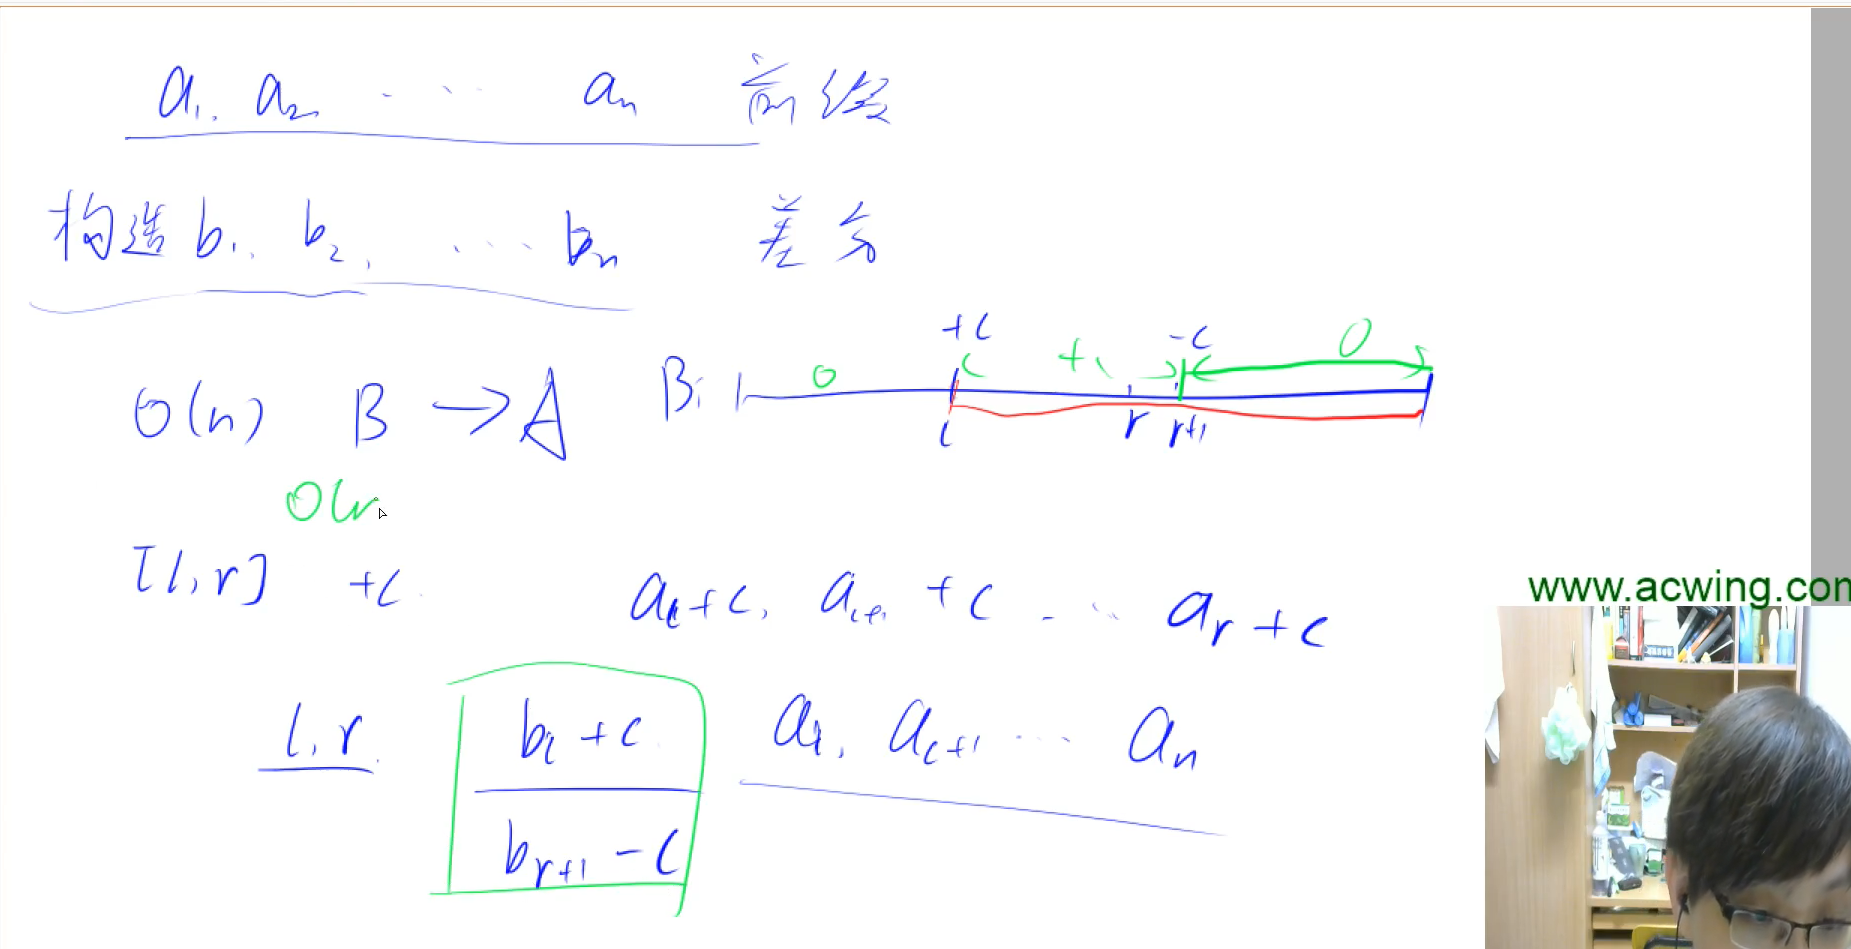 a₁, a₂ ...... aₙ 前缀
构造 b₁, b₂, ...... bₙ 差分
O(n) B → A
B: 0 +c +c -c 0
l r r+1
O(n
[l, r] +c
aₗ+c, aₗ₊₁+c ...... aᵣ+c
l, r bₗ+c aₗ, aₗ₊₁ ...... aₙ
bᵣ₊₁-c
www.acwing.com